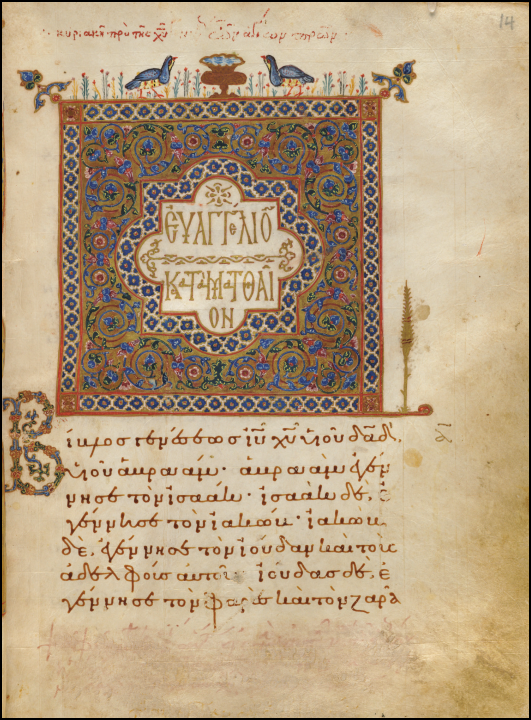 14
κυριακῆ πρὸ τῆς χ̅υ̅
ΕΥΑΓΓΕΛΙΟ
ΚΑΤΑ ΜΑΤΘΑΙ
ΟΝ
Βίβλος γενέσεως ι̅υ̅ χ̅υ̅ υἱοῦ δα̅δ̅,
υἱοῦ ἀβραάμ· ἀβραὰμ ἐγέν
νησε τὸν ἰσαάκ· ἰσαὰκ δὲ, ἐ
γέννησε τὸν ἰακώβ· ἰακὼβ
δὲ, ἐγέννησε τὸν ἰούδαν καὶ τοὺς
ἀδελφοὺς αὐτοῦ· ἰούδας δὲ, ἐ
γέννησε τὸν φαρὲς καὶ τὸν ζαρὰ